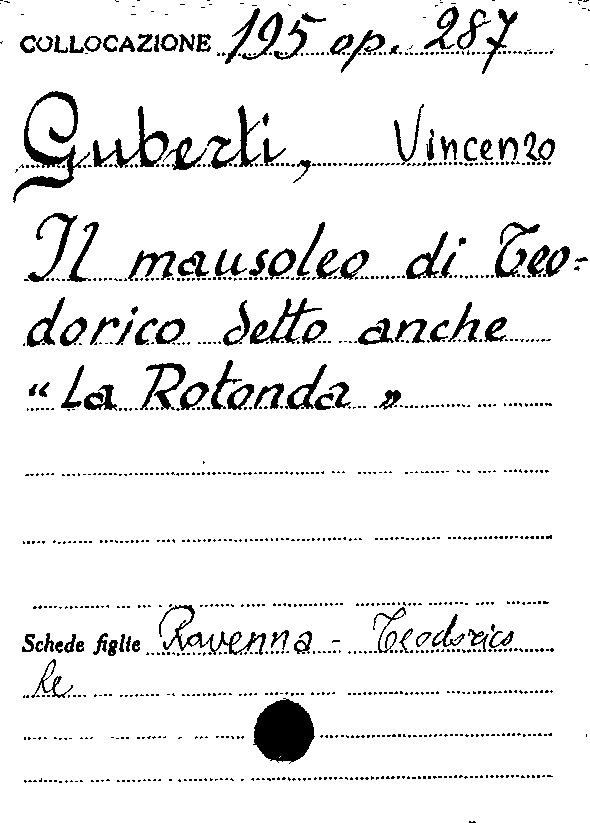 COLLOCAZIONE 195 op. 287
Guberti, Vincenzo
Il mausoleo di Teo-
dorico detto anche
“La Rotonda”
Schede figlie Ravenna - Teodorico
Re